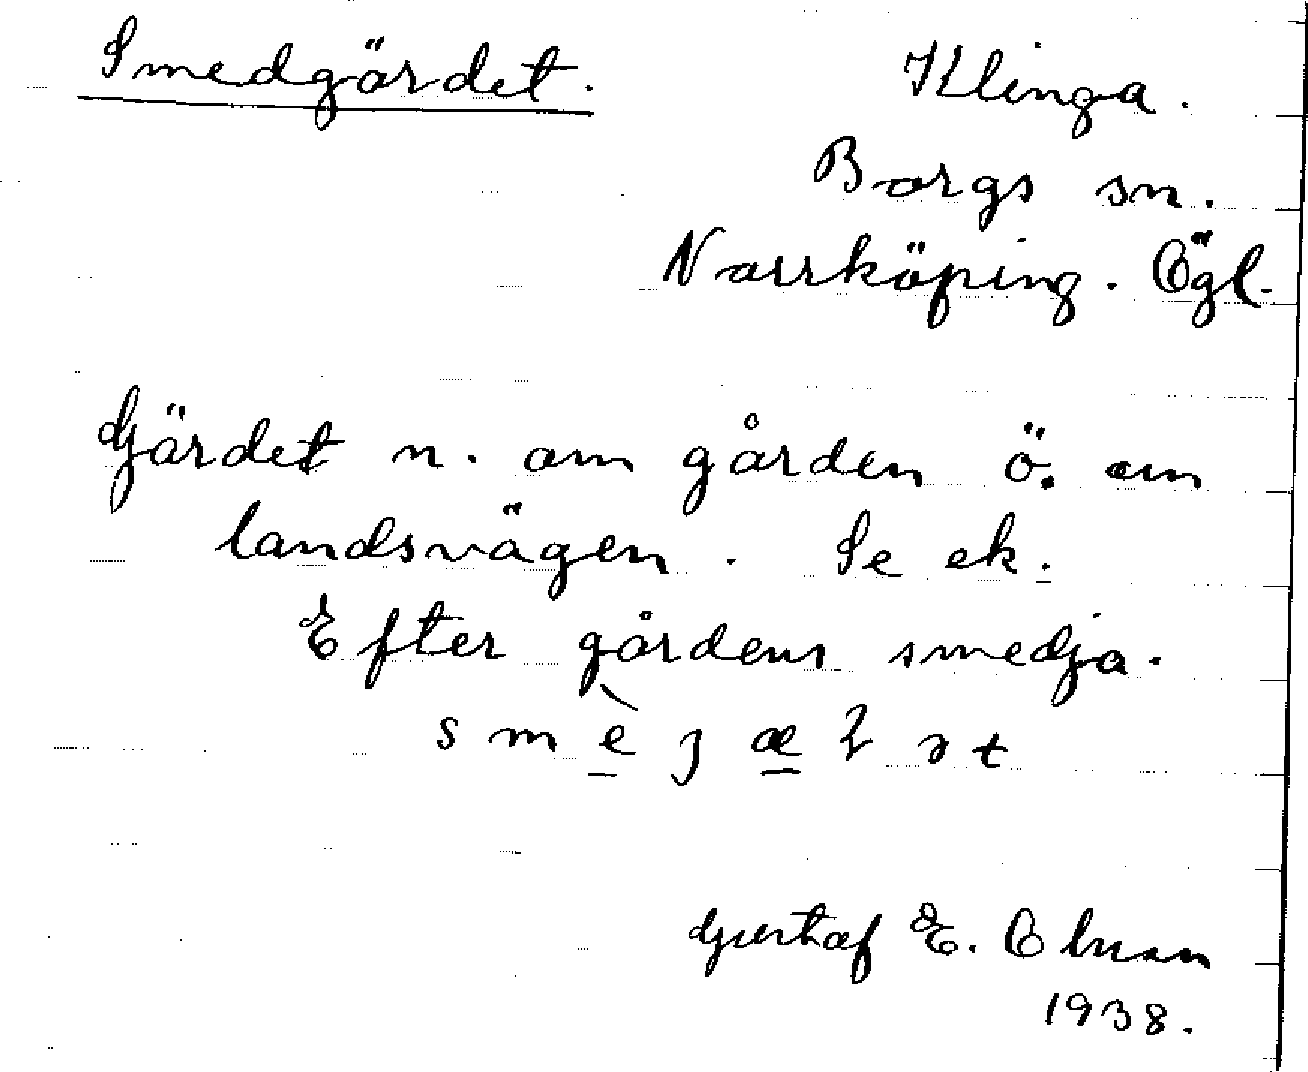 Smedgärdet. Klinga.
Borgs sn.
Norrköping. Ögl.
Gärdet n. om gården ö. om
landsvägen. Se ek.
Efter gårdens smedja.
Gustaf E. Olsson
1938.